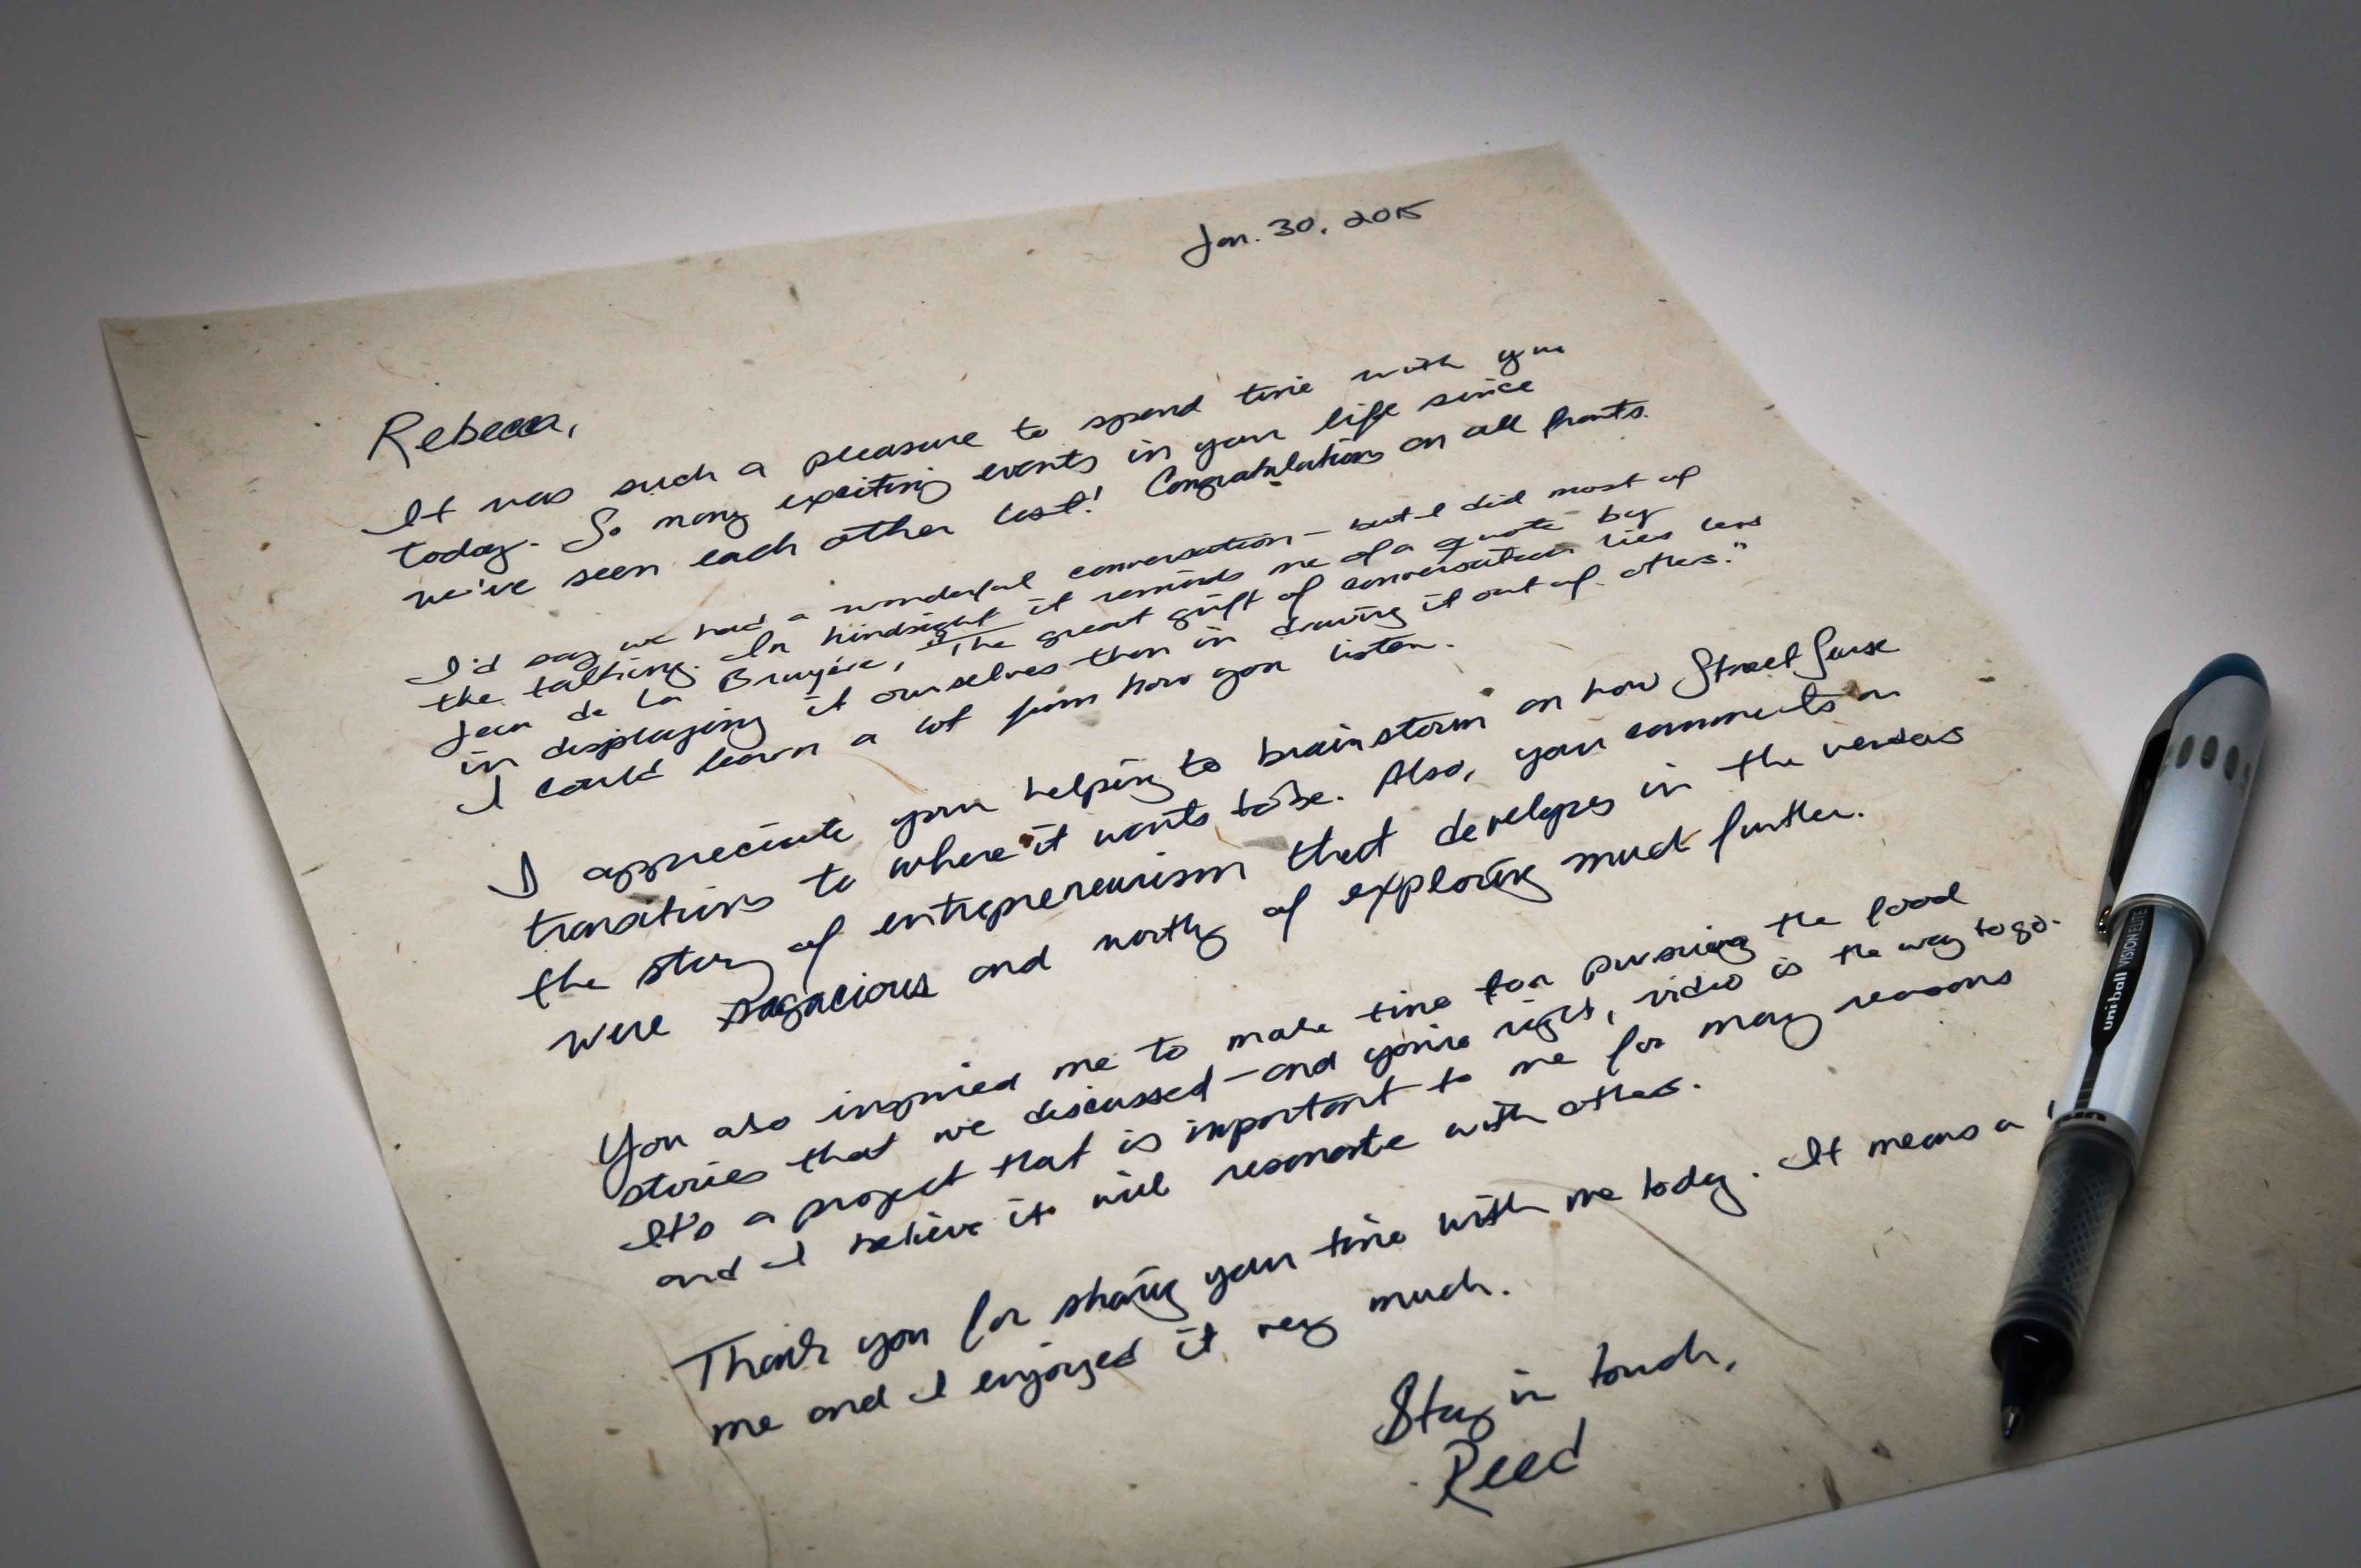 Jan. 30, 2015
Rebecca,
It was such a pleasure to spend time with you
today. So many exciting events in your life since
we've seen each other last! Congratulations on all fronts.
I'd say we had a wonderful conversation – but I did most of
the talking. In hindsight it reminds me of a quote by
Jean de La Bruyère, "The great gift of conversation lies less
in displaying it ourselves than in drawing it out of others."
I could learn a lot from how you listen.
I appreciate your helping to brainstorm on how Street Sense
transitions to where it wants to be. Also, your comments on
the story of entrepreneurism that develops in the vendors
were sagacious and worthy of exploring much further.
You also inspired me to make time for pursuing the food
stories that we discussed – and you're right, video is the way to go.
It's a project that is important to me for many reasons
and I believe it will resonate with others.
Thank you for sharing your time with me today. It means a
me and I enjoyed it very much.
Stay in touch,
Reed
uni-ball VISION ELITE